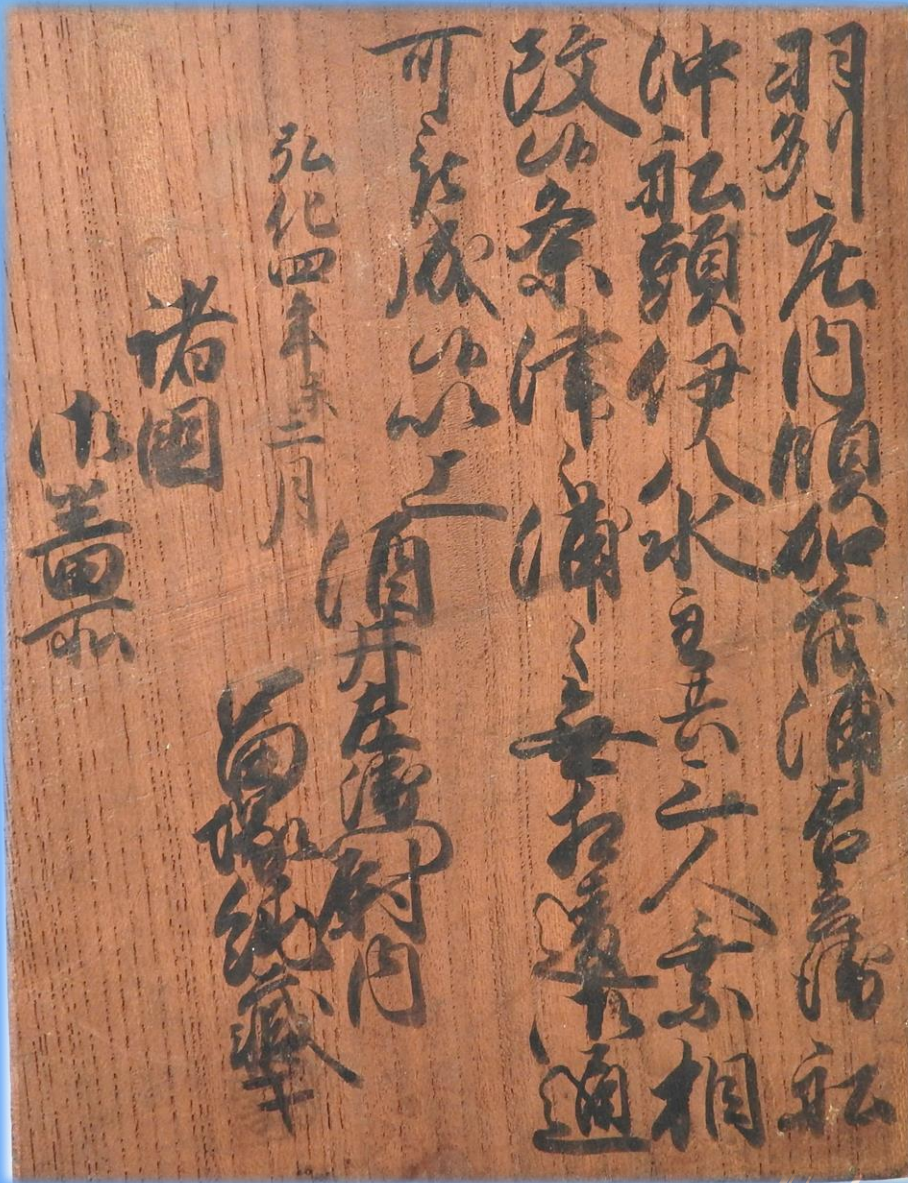 羽州庄内領加茂浦舩
沖舩頭伊八水主共三人乗相
改候条津々浦々無相違御通
可被成候以上
弘化四年未二月
酒井左衛門尉内
諸國
御番所